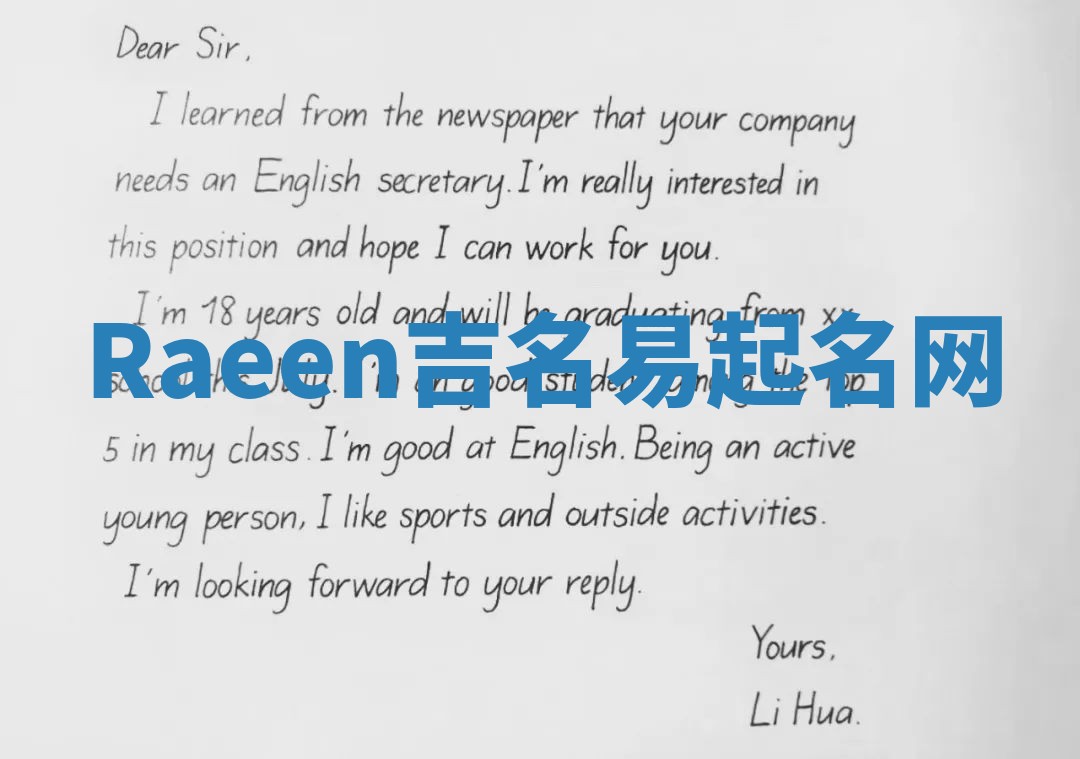 Dear Sir,
I learned from the newspaper that your company
needs an English secretary. I'm really interested in
this position and hope I can work for you.
I'm 18 years old and will be graduating from xx
Raeen吉名易起名网
school this July. I'm an good student among the Top
5 in my class. I'm good at English. Being an active
young person, I like sports and outside activities.
I'm looking forward to your reply.
Yours,
Li Hua.